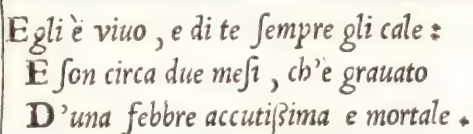 Egli è viuo , e di te ſempre gli cale :
E ſon circa due meſi , ch'è grauato
D'una febbre accutiſsima e mortale .